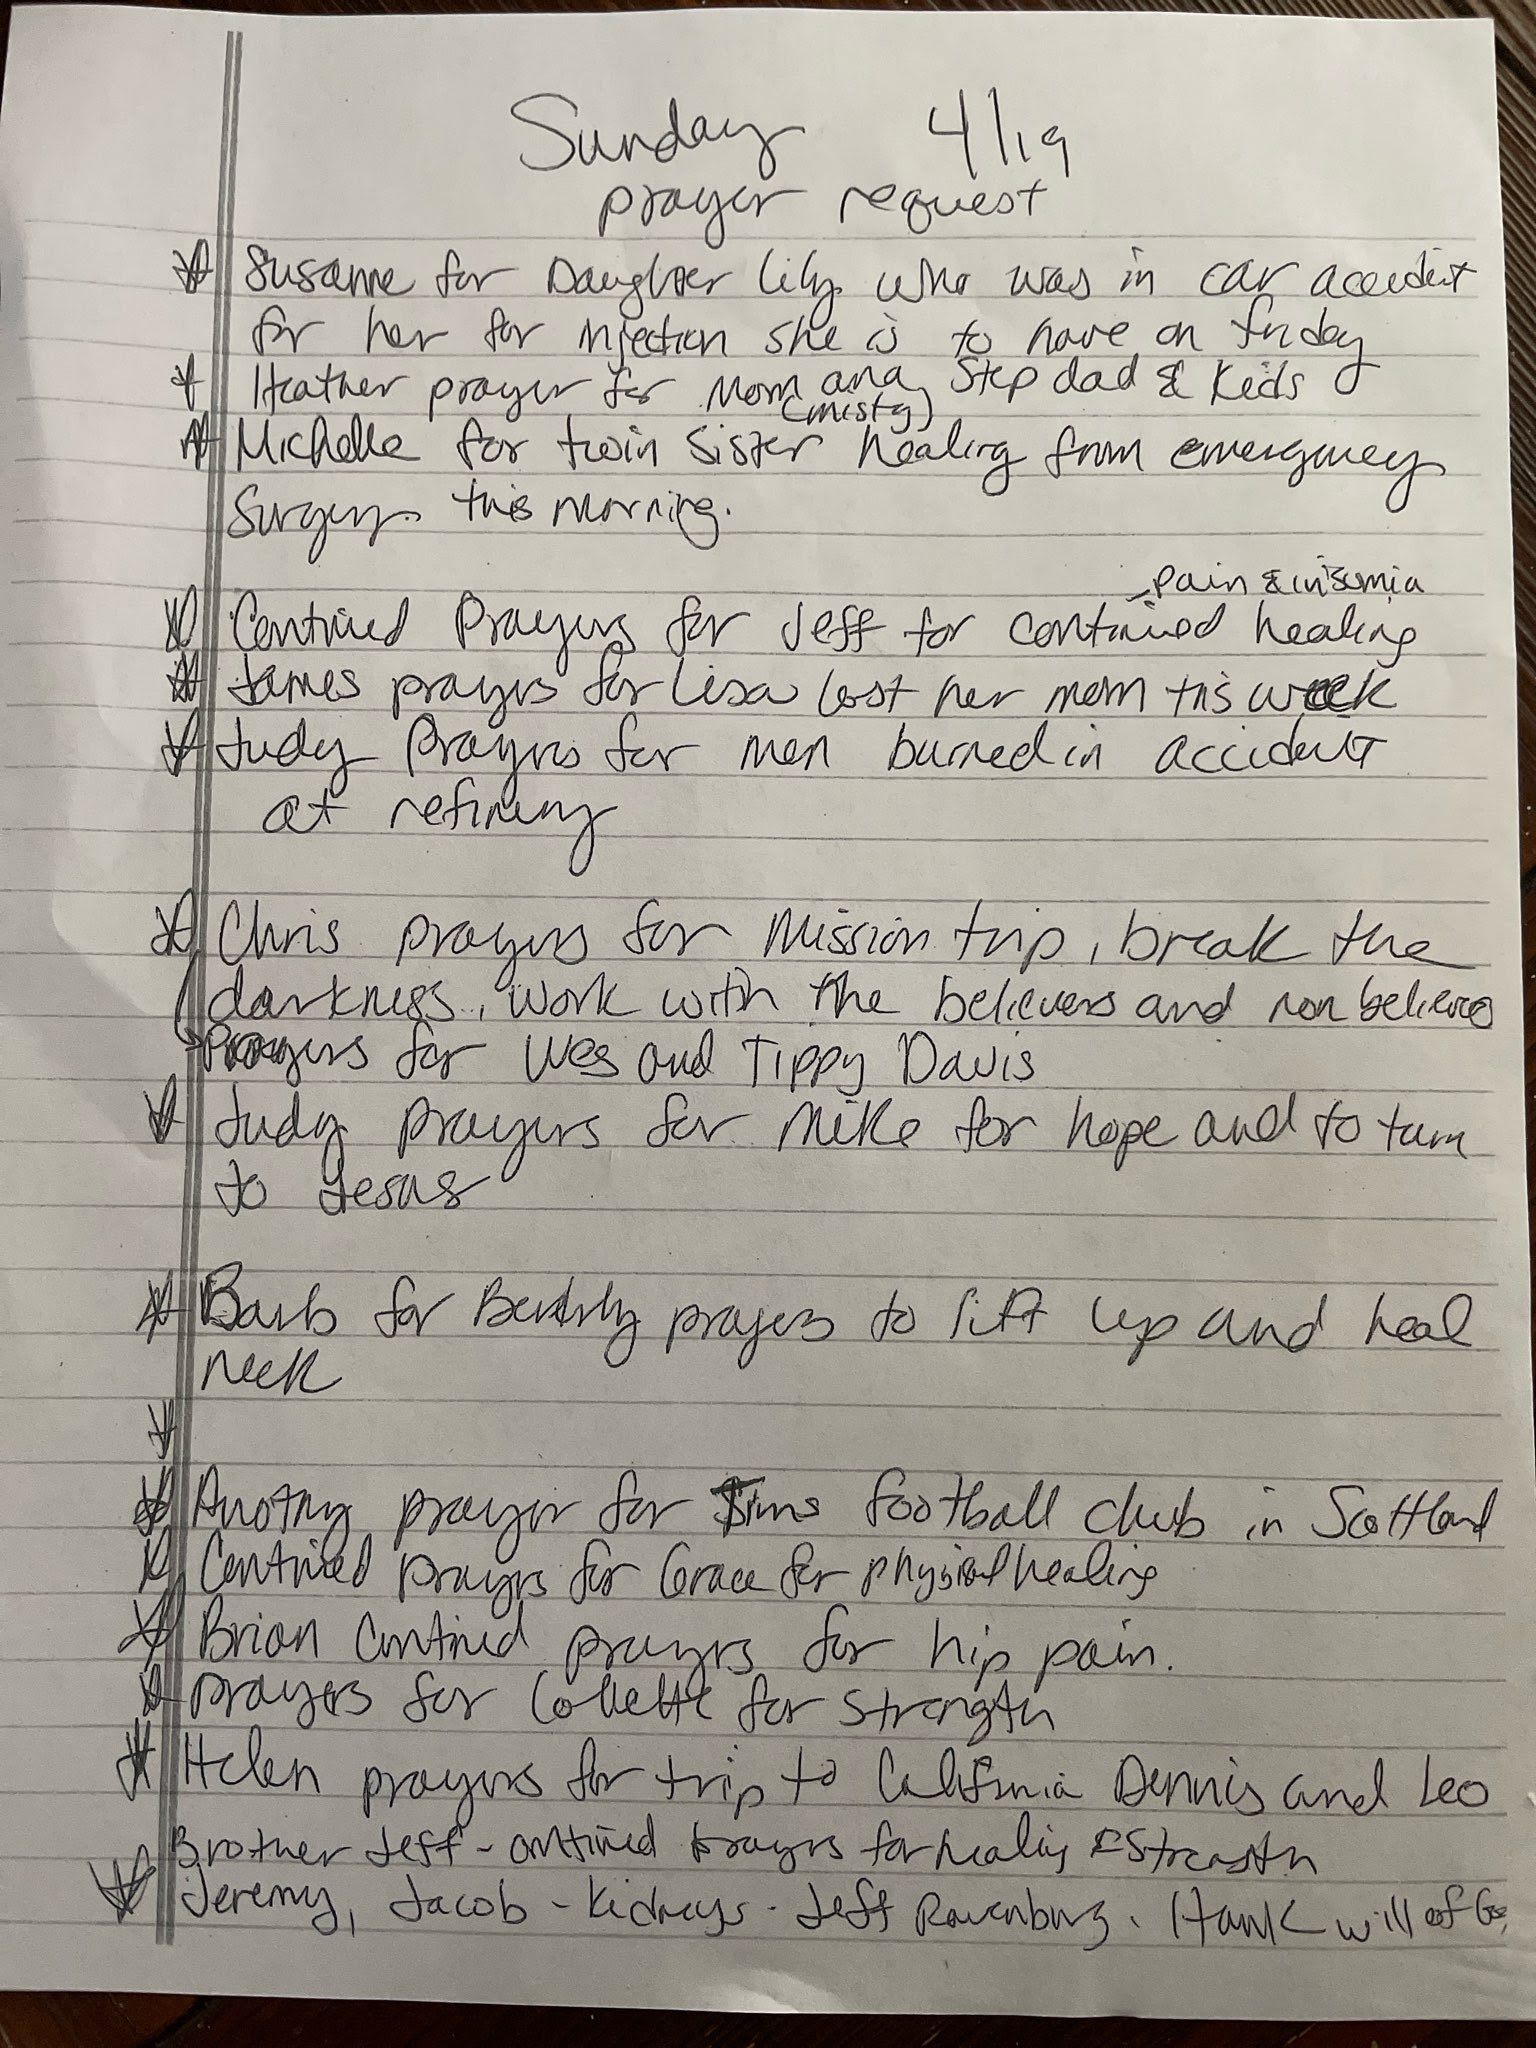 Sunday 4/19
prayer request
Susanne for Daughter Lily who was in car accident
for her for injection she is to have on friday
Heather prayer for Mom and Step dad & Kids
(misty)
Michelle for twin sister healing from emergency
Surgery. this morning.
pain & insomnia
Continued Prayers for Jeff for continued healing
James prayers for Lisa lost her mom this week
Judy Prayers for men burned in accident
at refinery
Chris prayers for Mission trip, break the
darkness, work with the believers and non believers
Prayers for Wes and Tippy Davis
Judy prayers for Mike for hope and to turn
to Jesus
Barb for prayers to lift up and heal
neck
prayer for Tims football club in Scottland
Continued prayers for Grace for physical healing
Brian Continued prayers for hip pain.
prayers for Collette for Strength
Helen prayers for trip to California Dennis and Leo
Brother Jeff - continued prayers for healing & Strength
Jeremy, Jacob - Kidneys. Jeff Hank will of